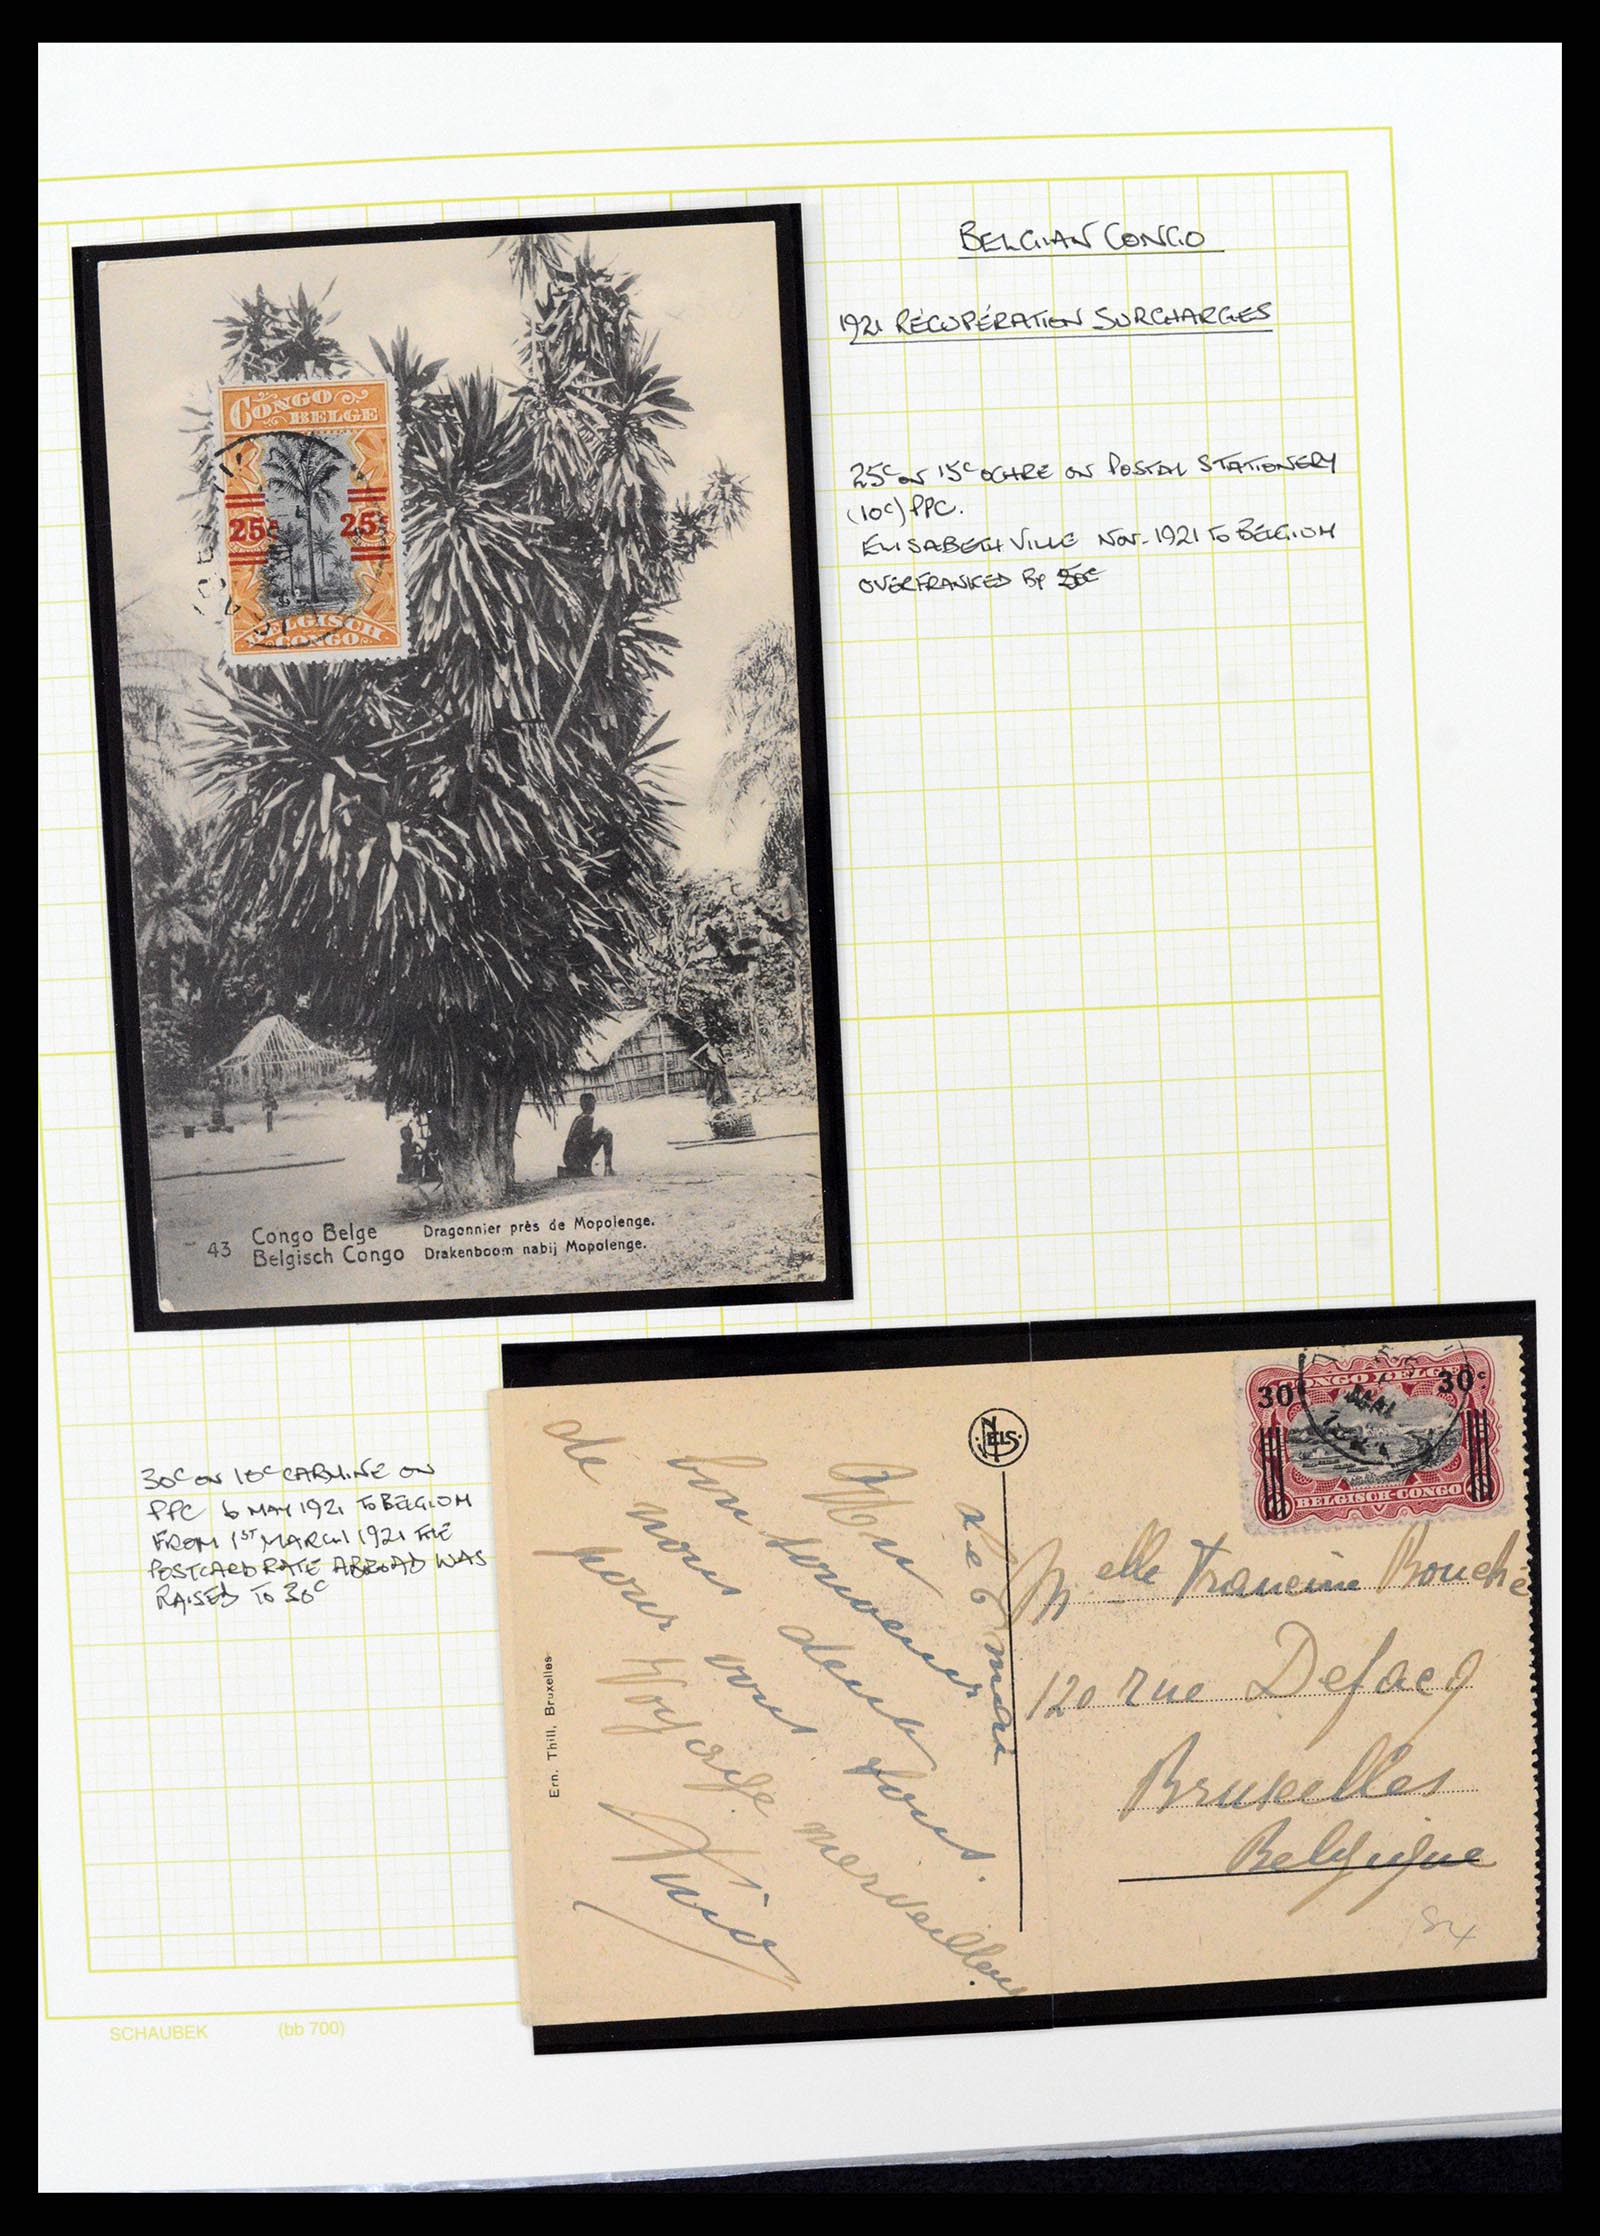 BELGIAN CONGO
1921 RÉCUPÉRATION SURCHARGES
CONGO
BELGE
25c 25c
BELGISCH
CONGO
25c ON 15c OCHRE ON POSTAL STATIONERY
(10c) PPC.
ELISABETHVILLE NOV. 1921 TO BELGIUM
OVERFRANKED BY
43 Congo Belge Dragonnier près de Mopolenge.
Belgisch Congo Drakenboom nabij Mopolenge.
30c ON 10c CARMINE ON
PPC 6 MAY 1921 TO BELGIUM
FROM 1ST MARCH 1921 THE
POSTCARD RATE ABROAD WAS
RAISED TO 30c
NELS
CONGO BELGE
30c 30c
BELGISCH-CONGO
Le 6 mai
Un
bon souvenir
de nous deux
pour vous tous.
Voyage merveilleux
Ern. Thill, Bruxelles
Melle Francine Bouché
120 rue Defacq
Bruxelles
Belgique
SCHAUBEK (bb 700)